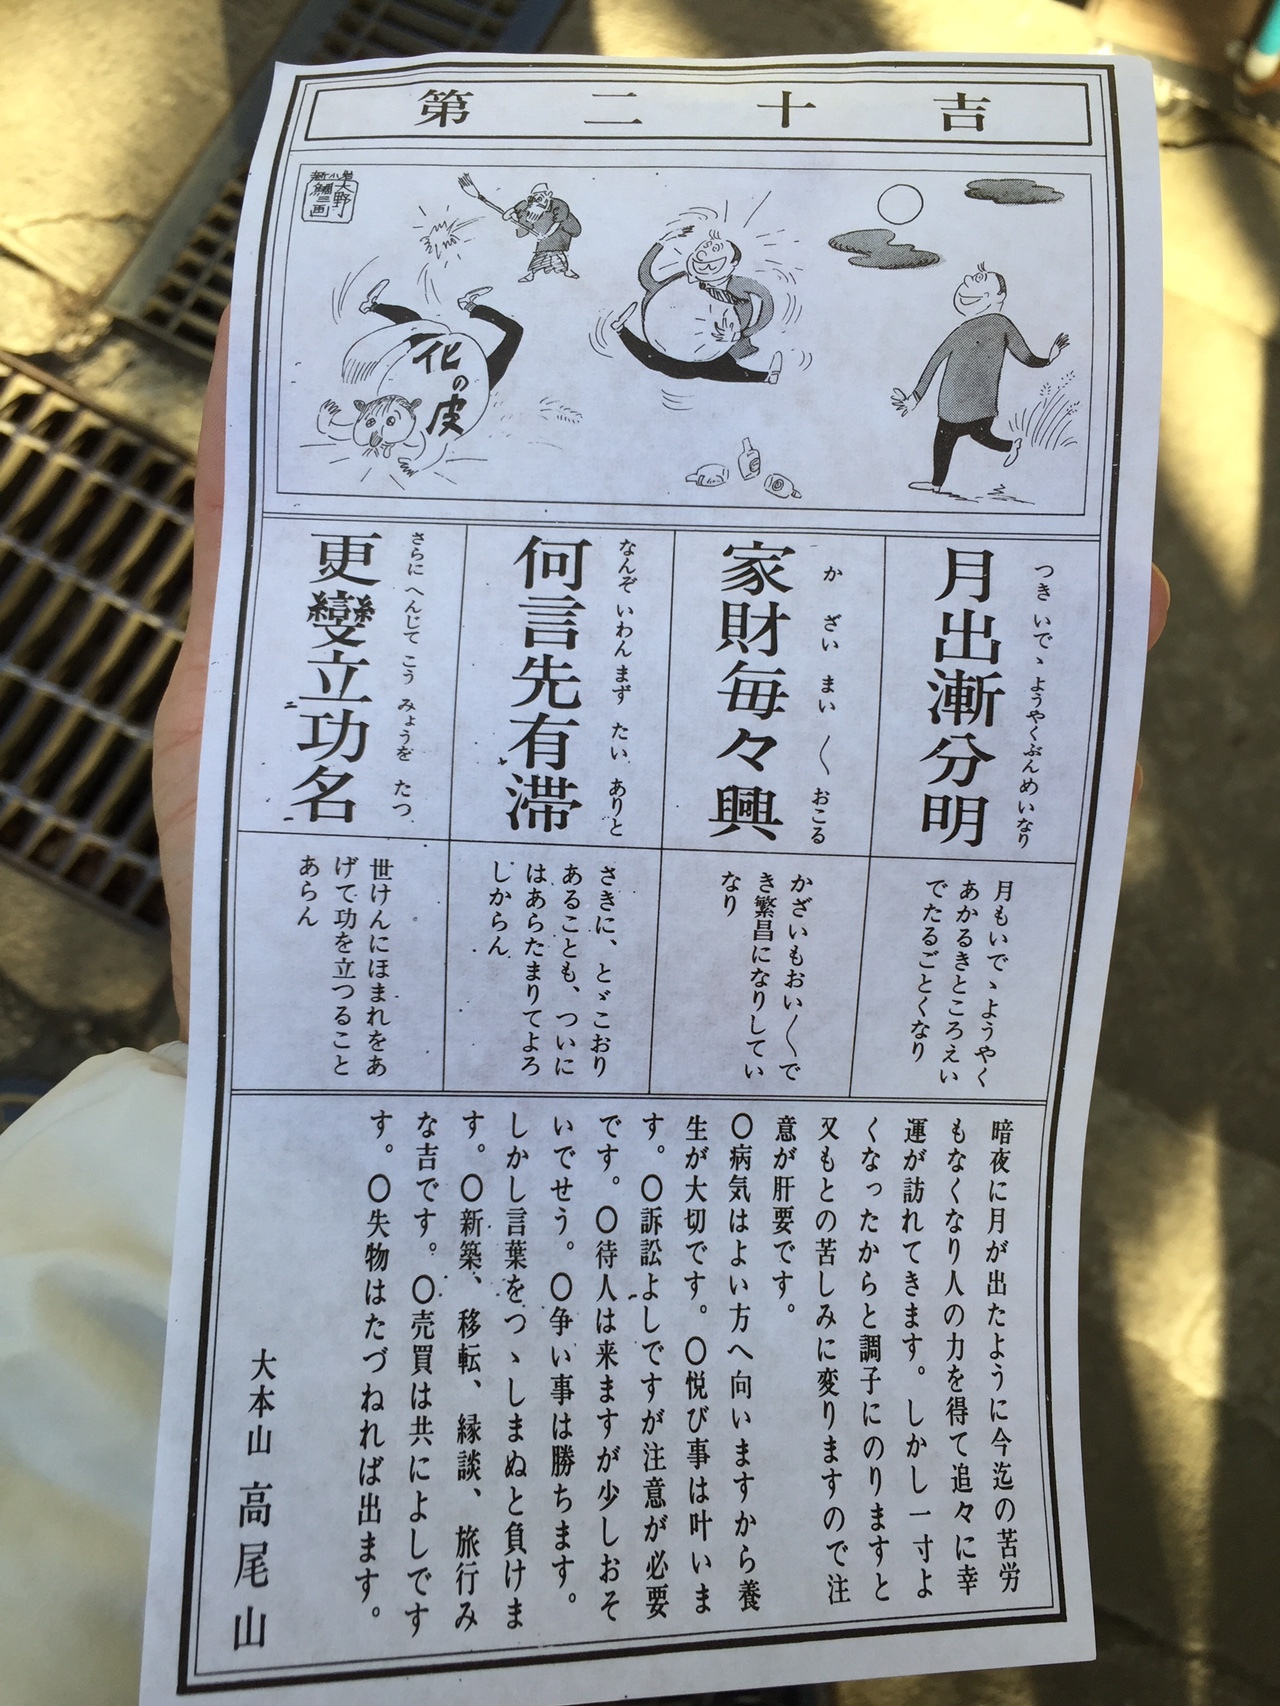 第二十吉
大野
鯛三画
化の皮
つきいでゝようやくぶんめいなり
月出漸分明
かざいまい〱おこる
家財毎々興
なんぞいわんまずたいありと
何言先有滞
さらにへんじてこうみょうをたつ
更變立功名
月もいでゝようやく
あかるきところえい
でたるごとくなり
かざいもおい〱で
き繁昌になりしてい
なり
さきに、とゞこおり
あることも、ついに
はあらたまりてよろ
しからん
世けんにほまれをあ
げて功を立つること
あらん
暗夜に月が出たように今迄の苦労
もなくなり人の力を得て追々に幸
運が訪れてきます。しかし一寸よ
くなったからと調子にのりますと
又もとの苦しみに変りますので注
意が肝要です。
〇病気はよい方へ向いますから養
生が大切です。〇悦び事は叶いま
す。〇訴訟よしですが注意が必要
です。〇待人は来ますが少しおそ
いでせう。〇争い事は勝ちます。
しかし言葉をつゝしまぬと負けま
す。〇新築、移転、縁談、旅行み
な吉です。〇売買は共によしです
す。〇失物はたづねれば出ます。
大本山 高尾山